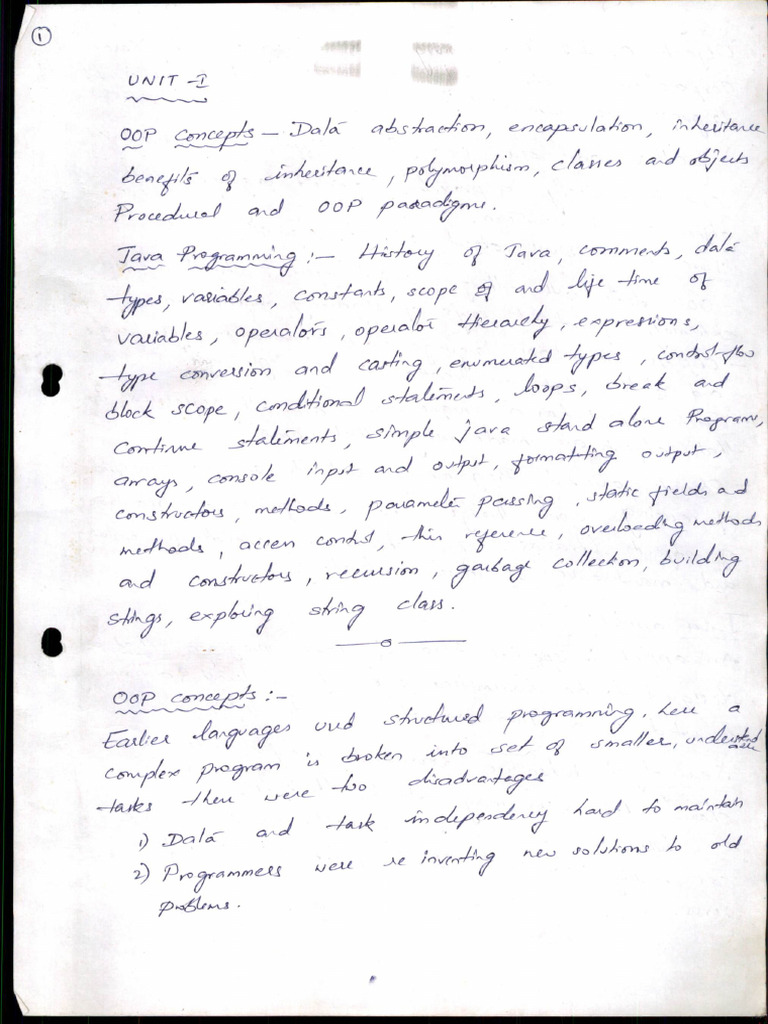 1
UNIT - I
OOP Concepts — Data abstraction, encapsulation, inheritance
benefits of inheritance, polymorphism, classes and objects
Procedural and OOP paradigms.
Java Programming :— History of Java, comments, data
types, variables, constants, scope of and life time of
variables, operators, operator Hierarchy, expressions,
type conversion and casting, enumerated types, control-flow
block scope, conditional statements, loops, break and
continue statements, simple java stand alone Programs,
arrays, console input and output, formatting output,
constructors, methods, parameter passing, static fields and
methods, access control, this reference, overloading methods
and constructors, recursion, garbage collection, building
stings, exploring string class.
OOP concepts :—
Earlier languages used structured programming, here a
complex program is broken into set of smaller, understandable
tasks there were two disadvantages
1) Data and task independency hard to maintain
2) Programmers were re inventing new solutions to old
problems.